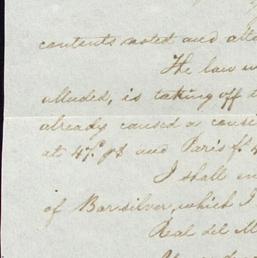 contents noted and atte
The law w
alludes, is taking off t
already caused a consi
at 47⅞ and Paris f. 4
I shall en
of Bar silver, which I
Real del M